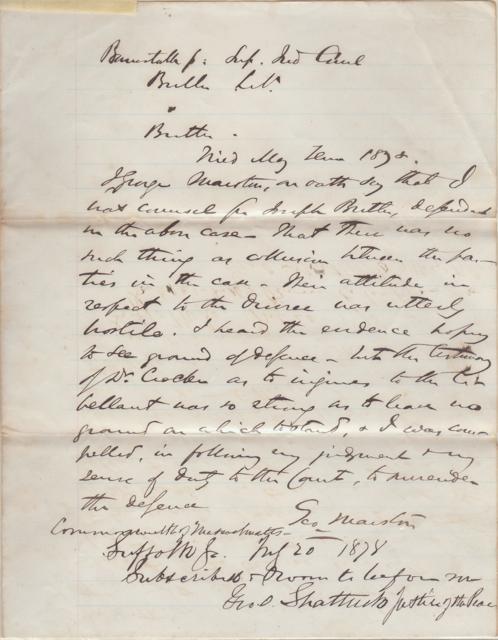 Barnstable ss. Sup. Jud. Court
Butler Libt.
v
Butler.
Tried May Term 1878.
I George Marston, on oath say that I
was counsel for Joseph Butler, defendant
in the above case. That there was no
such thing as collusion between the par-
ties in the case. Their attitude in
respect to the divorce was utterly
hostile. I heard the evidence hoping
to see ground of defence - but the testimony
of Dr Crocker as to injuries to the li-
bellant was so strong as to leave no
ground on which to stand, & I was com-
pelled, in following my judgment & my
sense of duty to the Court, to surrender
the defence
Geo. Marston
Commonwealth of Massachusetts
Suffolk ss. 20 1878
Subscribed & sworn to before me
Geo. O. Shattuck Justice of the Peace